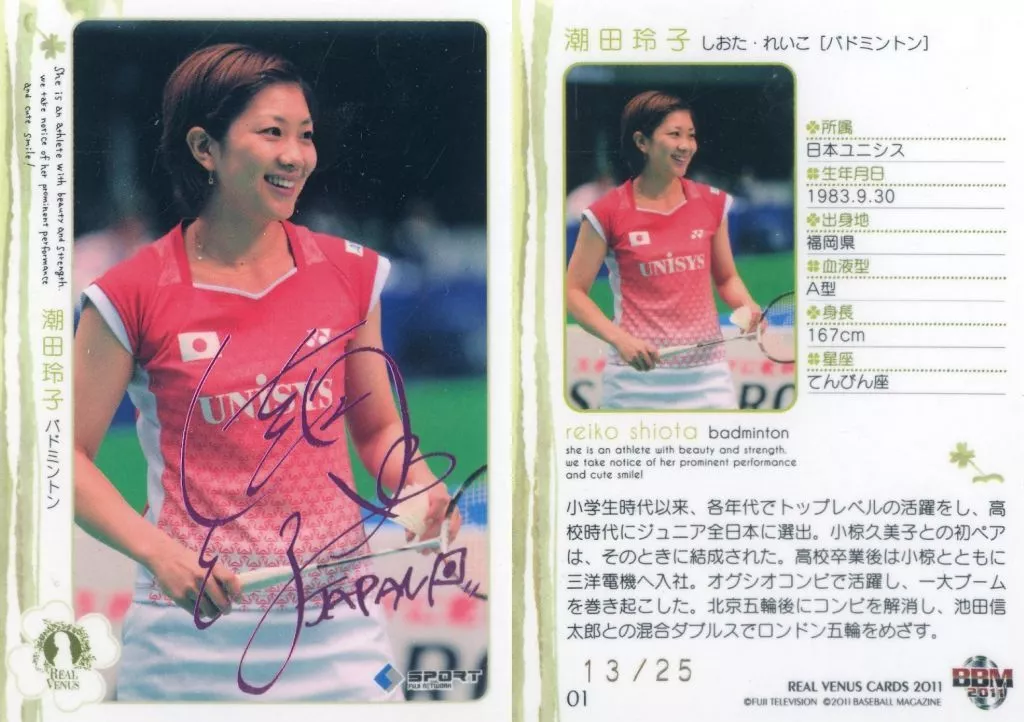 She is an athlete with beauty and strength.
we take notice of her prominent performance
and cute smile!
潮田玲子 バドミントン
UNISYS
JAPAN
REAL
VENUS
SPORT
FUJI NETWORK
潮田玲子 しおた・れいこ [バドミントン]
UNiSYS
所属
日本ユニシス
生年月日
1983.9.30
出身地
福岡県
血液型
A型
身長
167cm
星座
てんびん座
reiko shiota badminton
she is an athlete with beauty and strength.
we take notice of her prominent performance
and cute smile!
小学生時代以来、各年代でトップレベルの活躍をし、高
校時代にジュニア全日本に選出。小椋久美子との初ペア
は、そのときに結成された。高校卒業後は小椋とともに
三洋電機へ入社。オグシオコンビで活躍し、一大ブーム
を巻き起こした。北京五輪後にコンビを解消し、池田信
太郎との混合ダブルスでロンドン五輪をめざす。
13/25
01
REAL VENUS CARDS 2011
©FUJI TELEVISION ©2011 BASEBALL MAGAZINE
BBM
2011